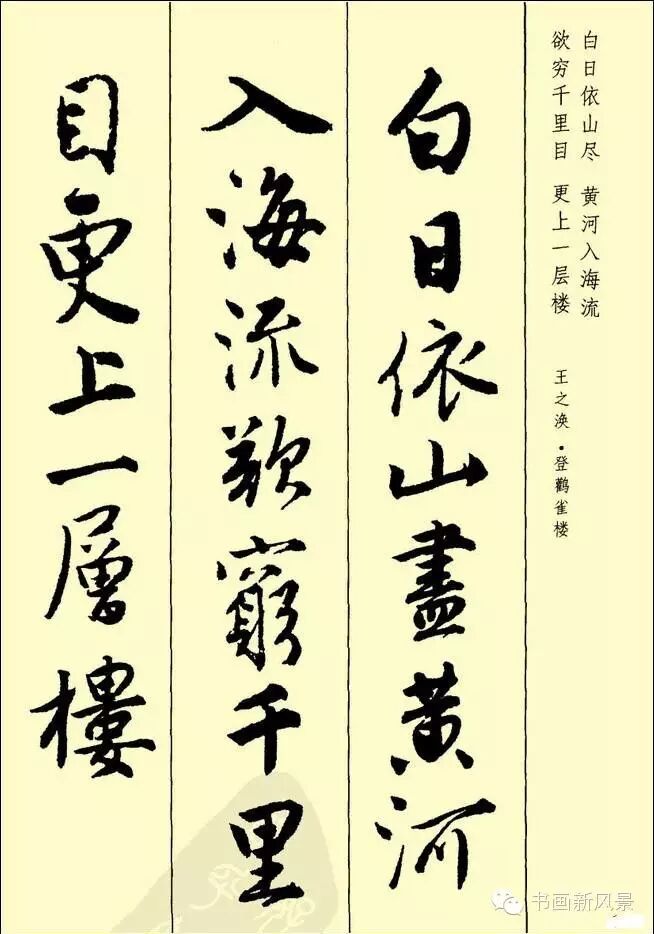 白日依山尽 黄河入海流
欲穷千里目 更上一层楼
王之涣·登鹳雀楼
白日依山盡黄河
入海流欲窮千里
目更上一層樓
书画新风景